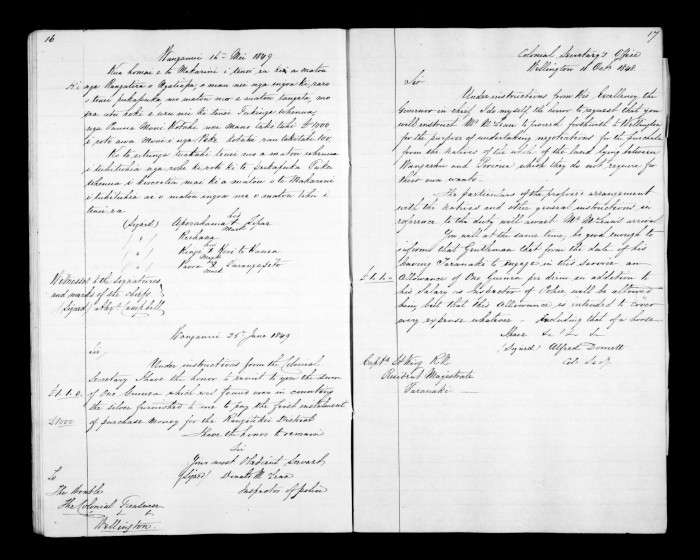 16
Wanganui 16th Mei 1849
Kua homai e te Makarini i tenei ra kia a matou
Ki nga Rangatira o Ngatiapa, o muri nei nga ingoa ki raro
i tenei pukapuka, mo matou mo o matou tangata, mo
nga Pauna Moni Kotahi
i roto ano i nga Rake kotahi rau takitahi te
Ko te utunga tuatahi tenei mo o matou whenua
i tuhituhia nga rohe ki roto ki te Pukapuka Tuku
whenua i hoatu mai ki a matou e te Makarini
i tuhituhia ai o matou ingoa me o matou tohu i
tenei ra
(Signed) Aperahama his x mark Tipae
( " ) Reihana
( " ) Kingi his x mark Hori te Hanea
( " ) Pawa his x mark
Witnesses to the signatures
and marks of the chiefs
(signed) Campbell
Wanganui 25th June 1849
Sir,
Under instructions from the Colonial
Secretary I have the honor to remit to you the sum
£1.1.0. of One Guinea which was found over in counting
the silver furnished to me to pay the first instalment
£1000 of purchase money for the Rangitikei District
I have the honor to remain
Sir
Your most Obedient Servant
(Signed) Donald McLean
Inspector of Police
To
The Honble
The Colonial Treasurer
Wellington.
17
Colonial Secretary's Office
Wellington 11 Oct 1848.
Sir
Under instructions from His Excellency the
Governor in chief, I do myself the honor to request that you
will instruct Mr McLean to proceed forthwith to Wellington
for the purpose of undertaking negotiations for the purchase
from the natives of the whole of the land lying between
Wanganui and Porirua which they do not require for
their own wants.
The particulars of the proposed arrangement
with the natives and other general instructions in
reference to the duty will await Mr McLean's arrival
You will at the same time, be good enough to
inform that Gentleman that from the date of his
leaving Taranaki to engage in this service an
£1.1.0. Allowance of One Guinea per diem in addition to
his Salary as Inspector of Police, will be allowed
him but that this Allowance is intended to cover
every expense whatever - including that of a horse
I have &c &c &c
(Signed) Alfred Domett
Col: Secy.
Captn H King R.N.
Resident Magistrate
Taranaki